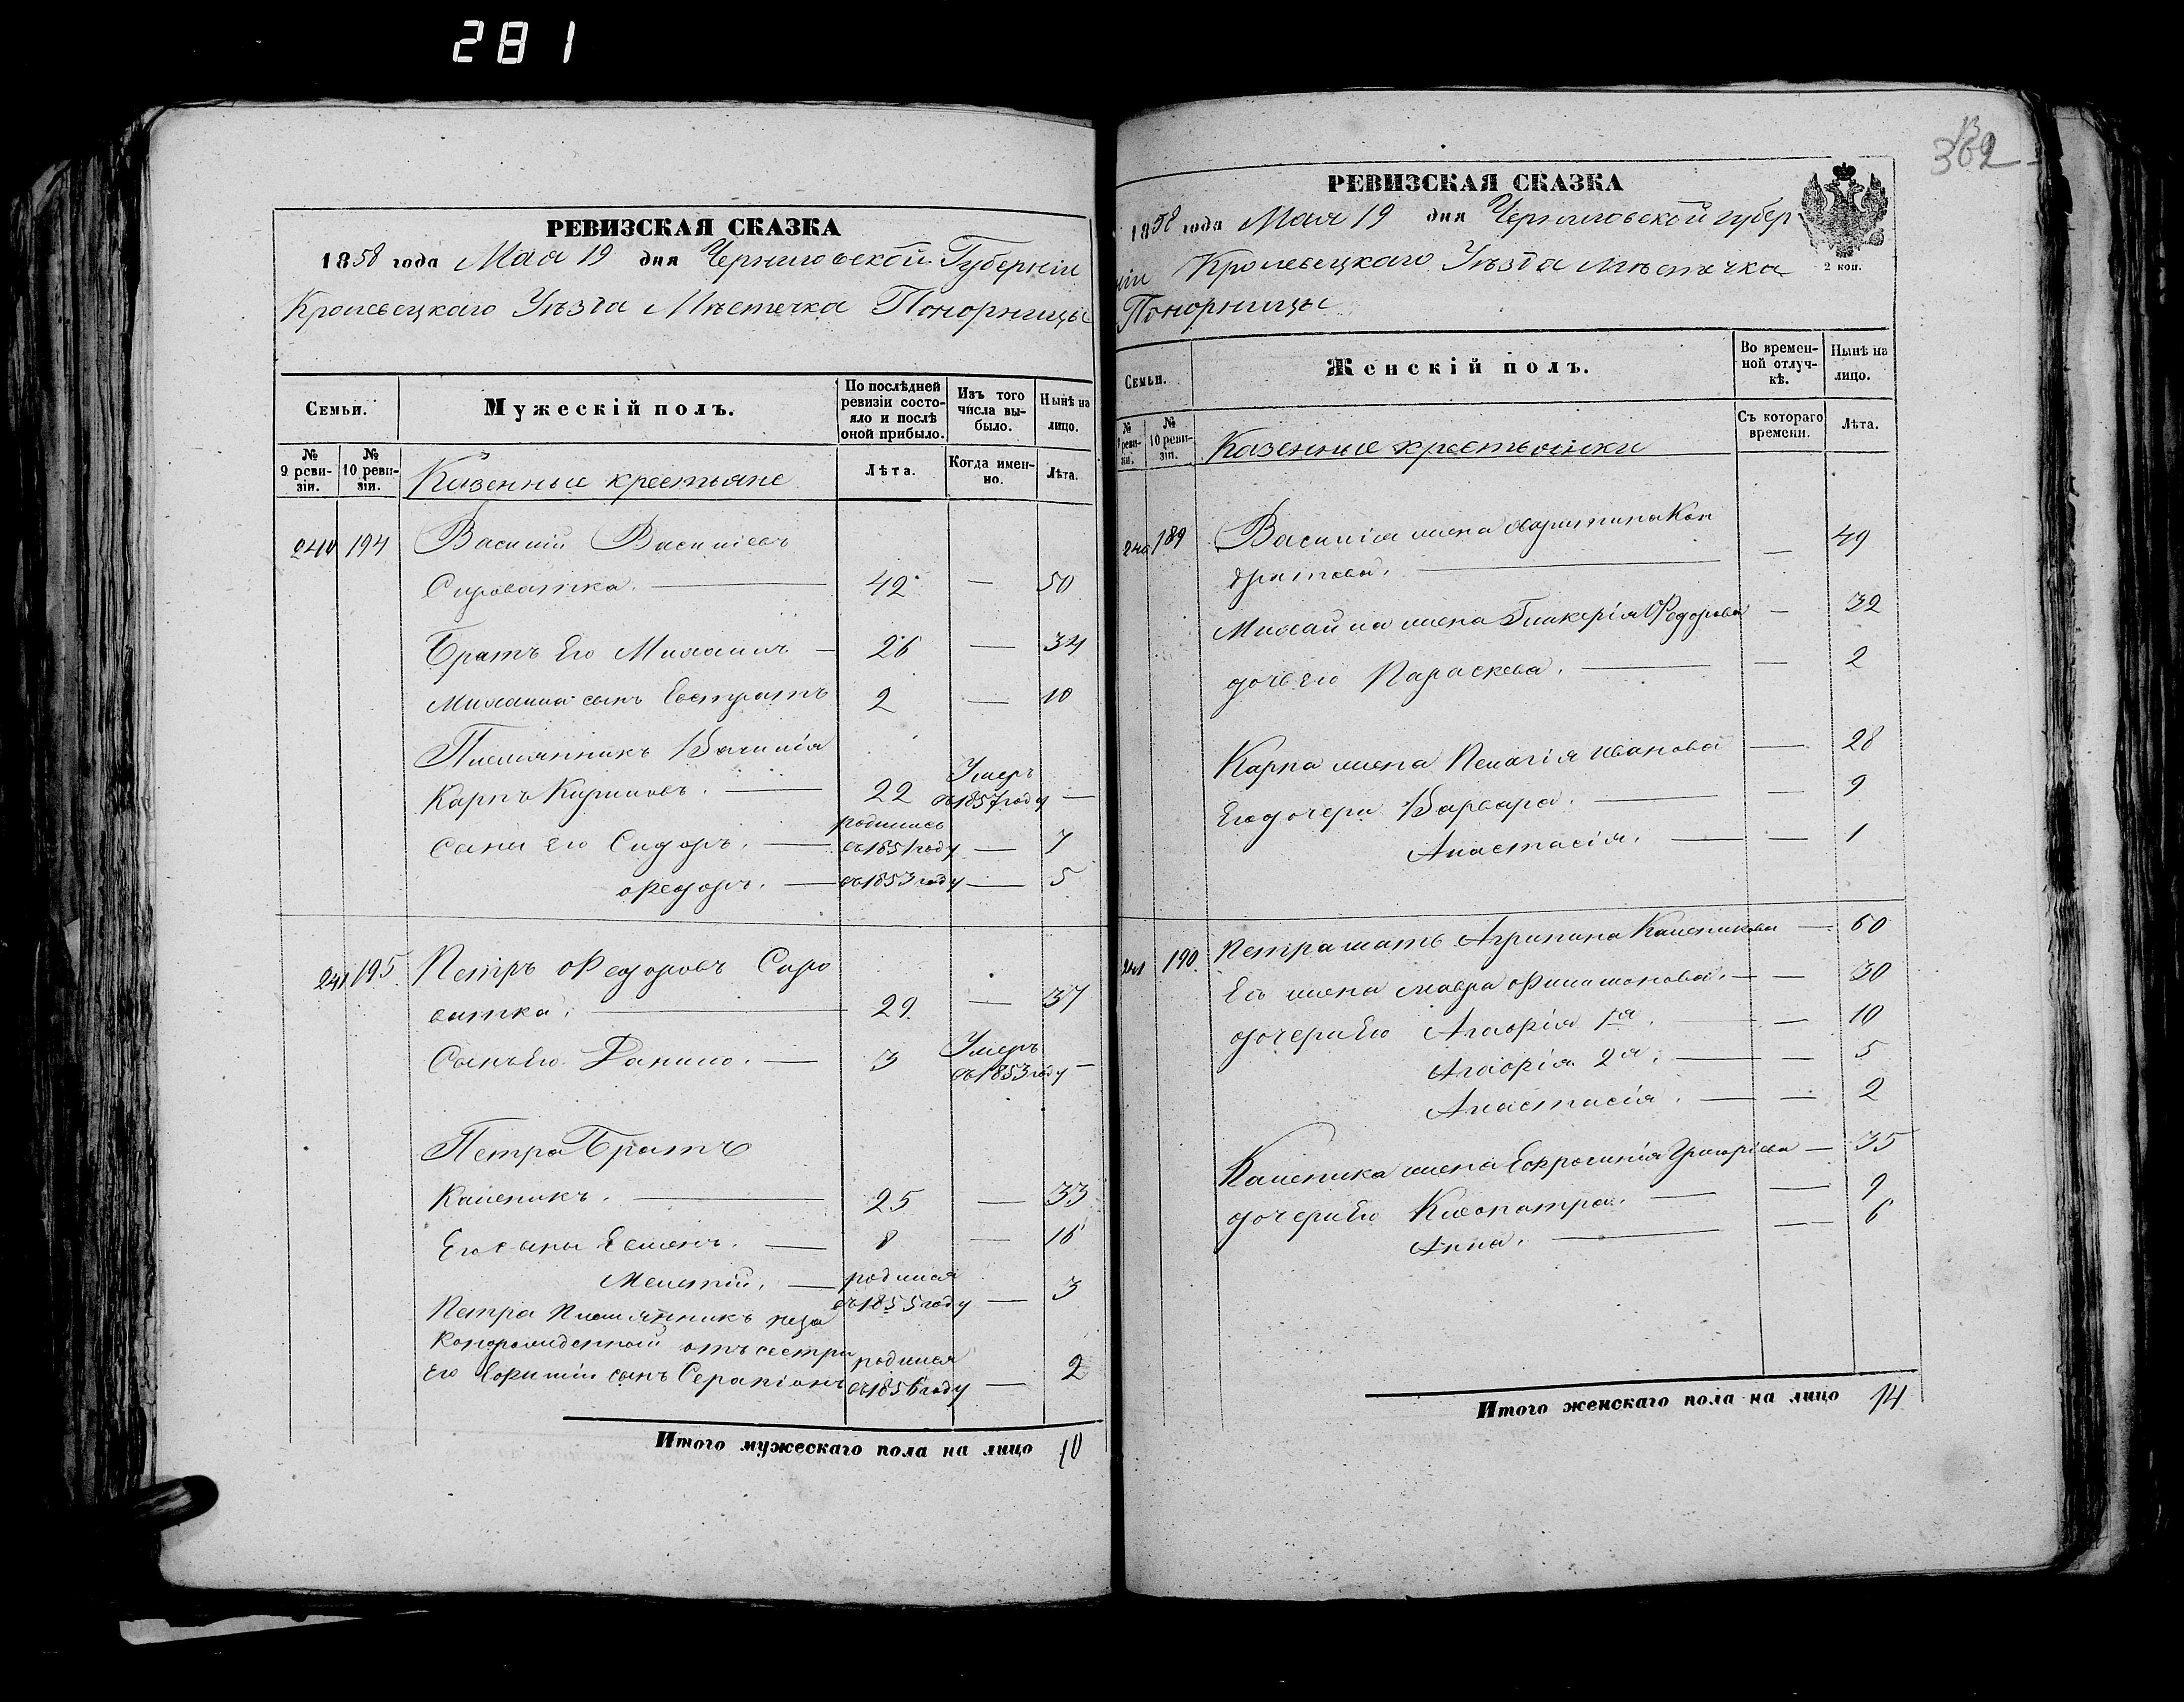 281
РЕВИЗСКАЯ СКАЗКА
1858 года Мая 19 дня Черниговской Губерніи
Кролевецкаго Уѣзда Мѣстечка Понорницы
Семьи. Мужескій полъ. По послѣдней ревизіи состояло и послѣ оной прибыло. Изъ того числа выбыло. Нынѣ на лицо.
№ 9 ревизіи. № 10 ревизіи. Казенные крестьяне Лѣта. Когда именно. Лѣта.
240 194 Василій Васильевъ
Сироватка. 42 — 50
Братъ его Михаилъ — 26 — 34
Михаила сынъ Евстратъ 2 — 10
Племянникъ Василія
Карпъ Кириловъ. — 22 Умеръ въ 1857 году —
Сыны его Сидоръ. — родились въ 1851 году — 7
Федоръ. — въ 1853 году — 5
241 195. Петръ Федоровъ Сиро
ватка. 29 — 37
Сынъ его Данило. — 3 Умеръ въ 1853 году —
Петра Братъ
Каленикъ. — 25 — 33
Его сыны Семенъ. — 8 — 16
Мелетій. — родился въ 1855 году — 3
Петра племянникъ неза
конорожденный отъ сестры
его Евфиміи сынъ Серапіонъ родился въ 1856 году — 2
Итого мужескаго пола на лицо 10
362
РЕВИЗСКАЯ СКАЗКА
1858 года Мая 19 дня Черниговской губер
ніи Кролевецкаго Уѣзда Мѣстечка
2 коп.
Понорницы
Семьи. Женскій полъ. Во временной отлучкѣ. Нынѣ на лицо.
№ 9 ревизіи. № 10 ревизіи. Казенные крестьянки Съ котораго времени. Лѣта.
240 189 Василія жена Харитина Кон
дратова. — 49
Михайла жена Гликерія Федорова — 32
дочь его Параскева. — — 2
Карпа жена Пелагія Иванова — 28
Его дочери Варвара. — — 9
Анастасія. — — 1
241 190. Петра мать Агрипина Каленикова — 60
Его жена Мавра Филимонова. — — 30
дочери его Агафія 1я. — — 10
Агафія 2я. — — 5
Анастасія. — — 2
Каленика жена Ефросинія Григоріева — 35
дочери его Клеопатра. — — 9
Анна. — — 6
Итого женскаго пола на лицо 14